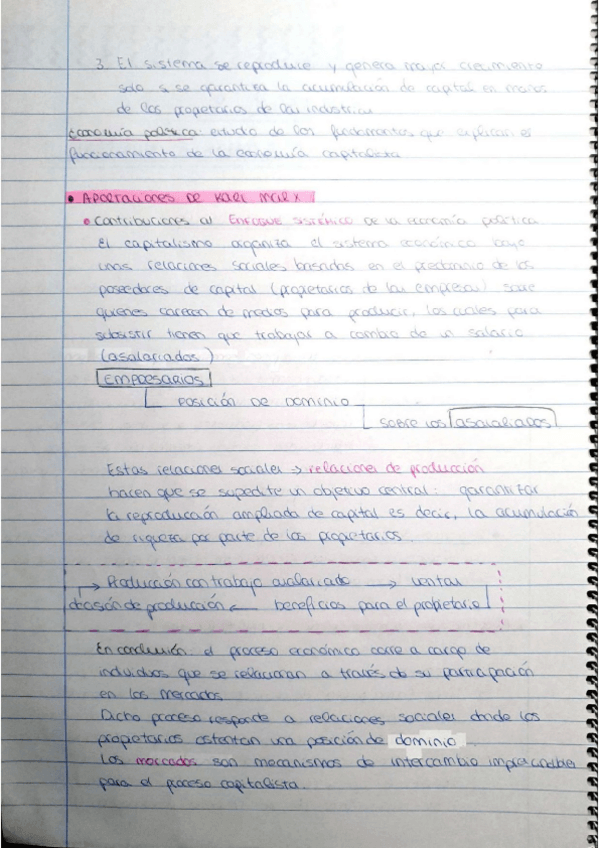 3. El sistema se reproduce y genera mayor crecimiento
solo si se garantiza la acumulación de capital en manos
de los propietarios de las industrias
Economía política: estudio de los fundamentos que explican el
funcionamiento de la economía capitalista
• APORTACIONES DE KARL MARX
• Contribuciones al ENFOQUE SISTÉMICO de la economía política
El capitalismo organiza el sistema económico bajo
unas relaciones sociales basadas en el predominio de los
poseedores de capital (propietarios de las empresas) sobre
quienes carecen de medios para producir, los cuales para
subsistir tienen que trabajar a cambio de un salario
(asalariados)
EMPRESARIOS
POSICIÓN DE DOMINIO
SOBRE LOS ASALARIADOS
Estas relaciones sociales → relaciones de producción
hacen que se supedite un objetivo central: garantizar
la reproducción ampliada de capital es decir, la acumulación
de riqueza por parte de los propietarios.
→ Producción con trabajo asalariado → ventas
decisión de producción ← beneficios para el propietario
En conclusión, el proceso económico corre a cargo de
individuos que se relacionan a través de su participación
en los mercados
Dicho proceso responde a relaciones sociales donde los
propietarios ostentan una posición de dominio.
Los mercados son mecanismos de intercambio imprescindibles
para el proceso capitalista.